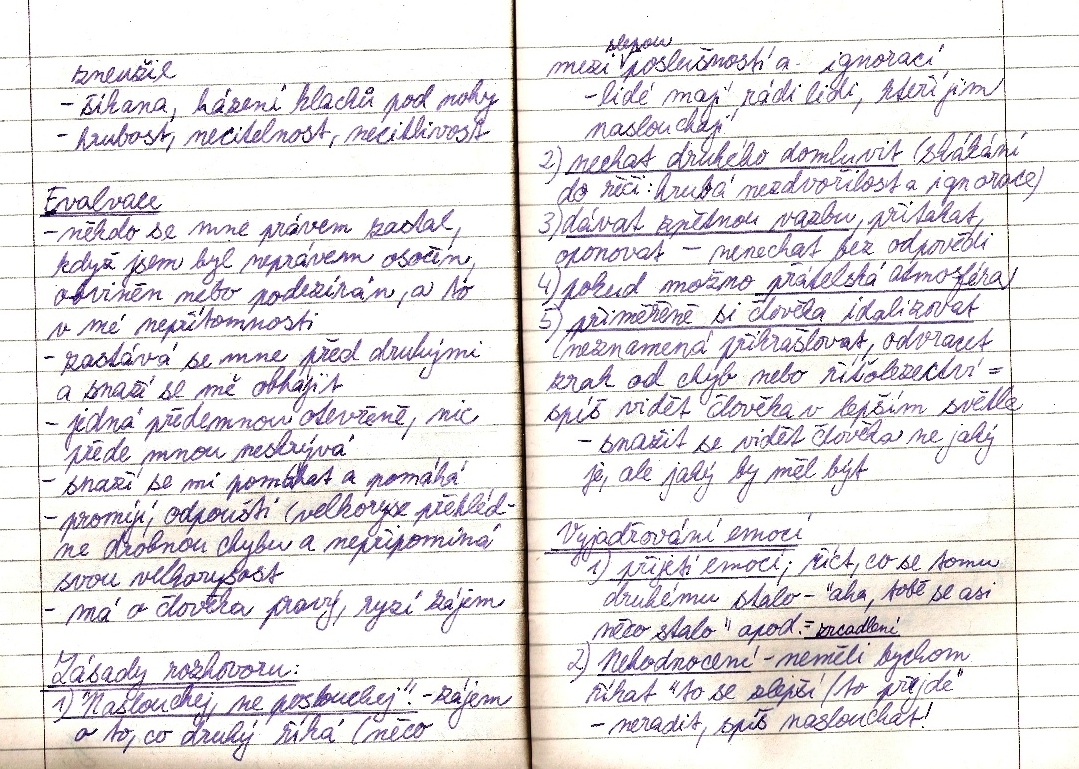 zneužil
- šikana, házení klacků pod nohy
- hrubost, necitelnost, necitlivost
Evalvace
- někdo se mne právem zastal,
když jsem byl neprávem osočen,
obviněn nebo podezírán, a to
v mé nepřítomnosti
- zastává se mne před druhými
a snaží se mě obhájit
- jedná předemnou otevřeně, nic
přede mnou neskrývá
- snaží se mi pomáhat a pomáhá
- promíjí, odpouští (velkoryse přehléd-
ne drobnou chybu a nepřipomíná
svou velkorysost
- má o člověka pravý, ryzí zájem
Zásady rozhovoru:
1) "Naslouchej, ne poslouchej". - zájem
o to, co druhý říká (něco
mezi slepou poslušností a ignorací
- lidé mají rádi lidi, kteří jim
naslouchají!
2) nechat druhého domluvit (skákání
do řeči: hrubá nezdvořilost a ignorace)
3) dávat zpětnou vazbu, přitakat,
oponovat - nenechat bez odpovědi
4) pokud možno přátelská atmosféra)
5) přiměřeně si člověka idalizovat
(neznamená přikrášlovat, odvracet
zrak od chyb nebo řitolezectví =
spíš vidět člověka v lepším světle
- snažit se vidět člověka ne jaký
je, ale jaký by měl být
Vyjadřování emocí
1) přijetí emocí; říct, co se tomu
druhému stalo - "aha, tobě se asi
něco stalo" apod. = zrcadlení
2) Nehodnocení - neměli bychom
říkat "to se zlepší / to přejde"
- neradit, spíš naslouchat!